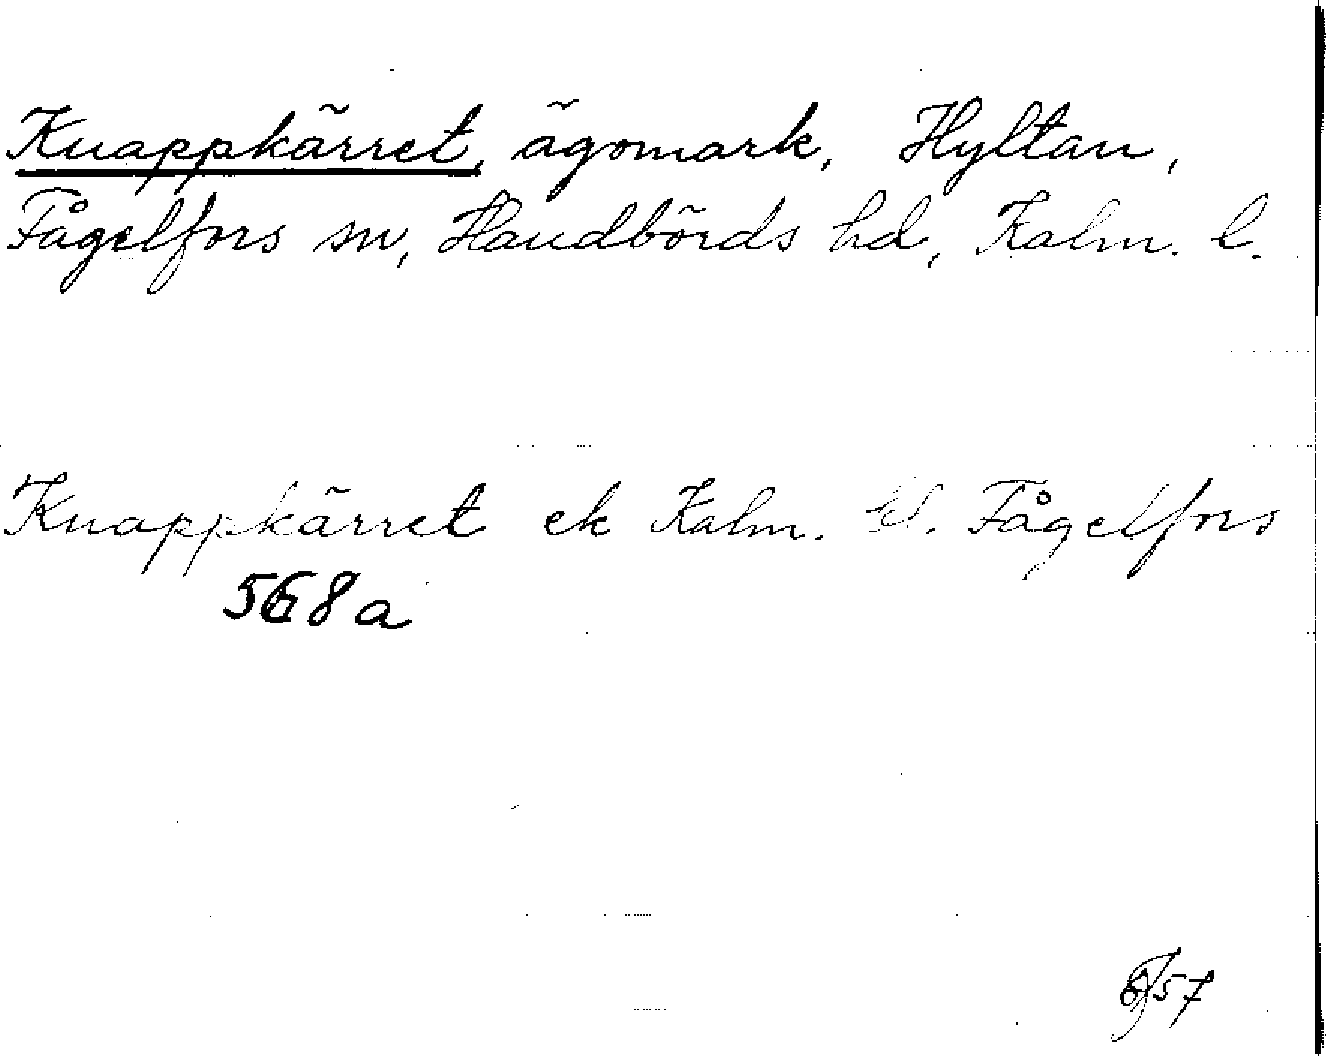 Knappkärret, ägomark, Hyltan,
Fågelfors sn, Handbörds hd, Kalm. l.
Knappkärret ek Kalm. Fågelfors
568a